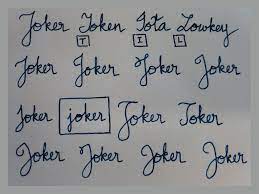 Joker Token Iota Lowkey
T I L
Joker Joker Joker Joker
Joker joker Joker Toker
Joker Joker Joker Joker